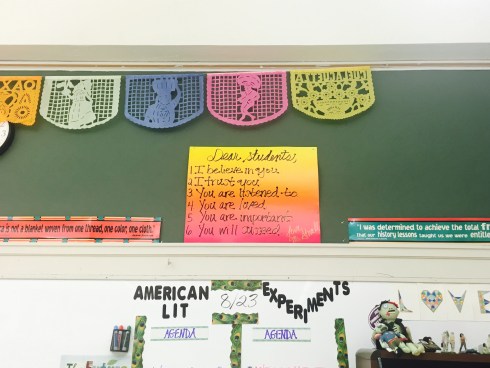 OAXA
CUELACUETIA
Dear students,
1 I believe in you
2 I trust you
3 You are listened to
4 You are loved
5 You are important
6 You will succeed
is not a blanket woven from one thread, one color, one cloth."
"I was determined to achieve the total
that our history lessons taught us we were entitle
AMERICAN 8/23 EXPERIMENTS
LIT
AGENDA AGENDA